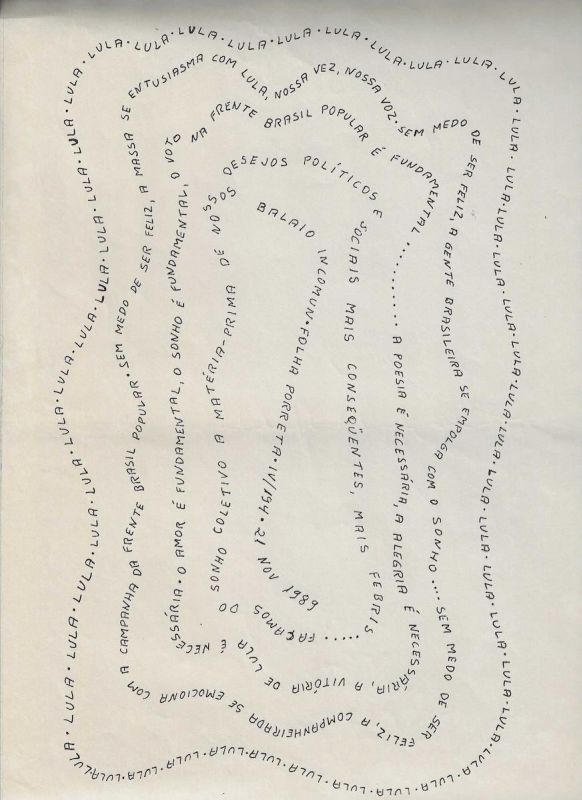 LULA · LULA · LULA · LULA · LULA · LULA · LULA · LULA · LULA · LULA · LULA · LULA · LULA · LULA · LULA · LULA · LULA · LULA · LULA · LULA · LULA · LULA · LULA · LULA · LULA · LULA · LULA · LULA · LULA · LULA · LULA · LULA · LULA · LULA · LULA · LULA · LULA · LULA · LULA · LULA · LULA · LULA · LULA · LULA · LULA · LULA · LULA · LULA · LULA
SEM MEDO DE SER FELIZ, A MASSA SE ENTUSIASMA COM LULA, NOSSA VEZ, NOSSA VOZ · SEM MEDO DE SER FELIZ, A GENTE BRASILEIRA SE EMPOLGA COM O SONHO.... SEM MEDO DE SER FELIZ, A COMPANHEIRADA SE EMOCIONA COM A CAMPANHA DA FRENTE BRASIL POPULAR ·
O AMOR É FUNDAMENTAL, O SONHO É FUNDAMENTAL, O VOTO NA FRENTE BRASIL POPULAR É FUNDAMENTAL ............ A POESIA É NECESSÁRIA, A ALEGRIA É NECESSÁRIA, A VITÓRIA DE LULA É NECESSÁRIA ·
FAÇAMOS DO SONHO COLETIVO A MATÉRIA-PRIMA DE NOSSOS DESEJOS POLÍTICOS E SOCIAIS MAIS CONSEQÜENTES, MAIS FEBRIS .....
BALAIO INCOMUN · FOLHA PORRETA · IV/194 · 21 NOV 1989